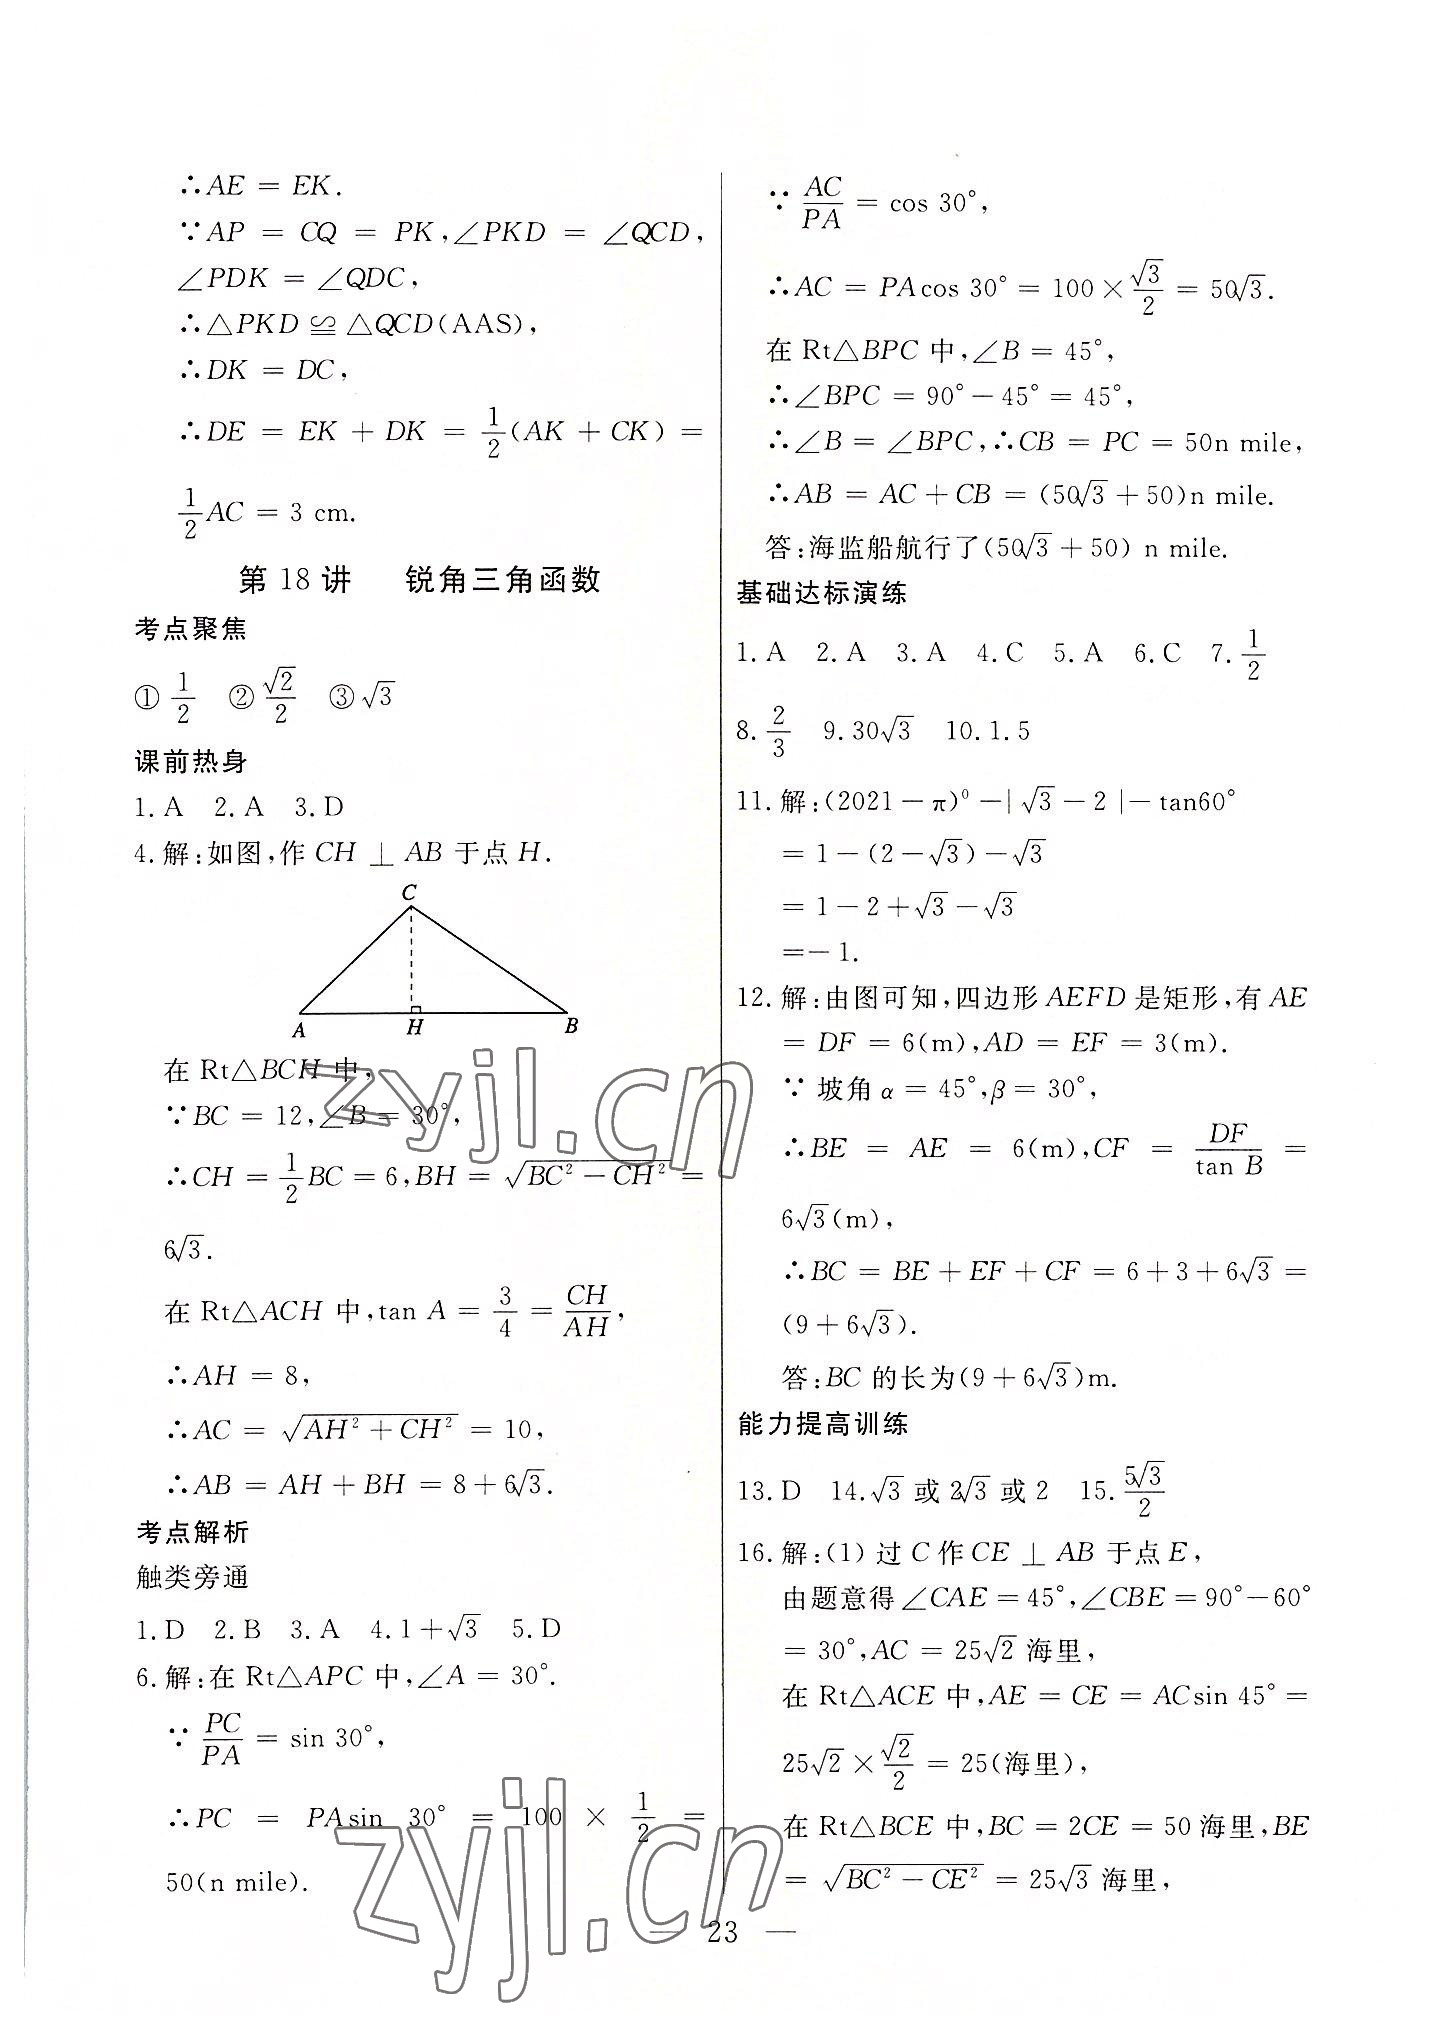 ∴AE = EK.
∵AP = CQ = PK,∠PKD = ∠QCD,
∠PDK = ∠QDC,
∴△PKD ≌ △QCD(AAS),
∴DK = DC,
∴DE = EK + DK = 1/2(AK + CK) =
1/2AC = 3 cm.
第 18 讲 锐角三角函数
考点聚焦
① 1/2 ② √2/2 ③ √3
课前热身
1. A 2. A 3. D
4. 解:如图,作 CH ⊥ AB 于点 H.
C
A H B
在 Rt△BCH 中,
∵BC = 12,∠B = 30°,
∴CH = 1/2BC = 6,BH = √(BC²－CH²) =
6√3.
在 Rt△ACH 中,tan A = 3/4 = CH/AH,
∴AH = 8,
∴AC = √(AH²＋CH²) = 10,
∴AB = AH + BH = 8 + 6√3.
考点解析
触类旁通
1. D 2. B 3. A 4. 1＋√3 5. D
6. 解:在 Rt△APC 中,∠A = 30°.
∵ PC/PA = sin 30°,
∴PC = PAsin 30° = 100 × 1/2 =
50(n mile).
∵ AC/PA = cos 30°,
∴AC = PAcos 30° = 100 × √3/2 = 50√3.
在 Rt△BPC 中,∠B = 45°,
∴∠BPC = 90°－45° = 45°,
∴∠B = ∠BPC,∴CB = PC = 50n mile,
∴AB = AC＋CB = (50√3＋50)n mile.
答:海监船航行了(50√3＋50) n mile.
基础达标演练
1. A 2. A 3. A 4. C 5. A 6. C 7. 1/2
8. 2/3 9. 30√3 10. 1.5
11. 解:(2021－π)⁰－|√3－2|－tan60°
= 1－(2－√3)－√3
= 1－2＋√3－√3
=－1.
12. 解:由图可知,四边形 AEFD 是矩形,有 AE
= DF = 6(m),AD = EF = 3(m).
∵ 坡角 α = 45°,β = 30°,
∴BE = AE = 6(m),CF = DF/tan B =
6√3(m),
∴BC = BE＋EF＋CF = 6＋3＋6√3 =
(9＋6√3).
答:BC 的长为(9＋6√3)m.
能力提高训练
13. D 14. √3 或 2√3 或 2 15. 5√3/2
16. 解:(1) 过 C 作 CE ⊥ AB 于点 E,
由题意得∠CAE = 45°,∠CBE = 90°－60°
= 30°,AC = 25√2 海里,
在 Rt△ACE 中,AE = CE = ACsin 45° =
25√2 × √2/2 = 25(海里),
在 Rt△BCE 中,BC = 2CE = 50 海里,BE
= √(BC²－CE²) = 25√3 海里,
— 23 —
zyjl.cn
zyjl.cn